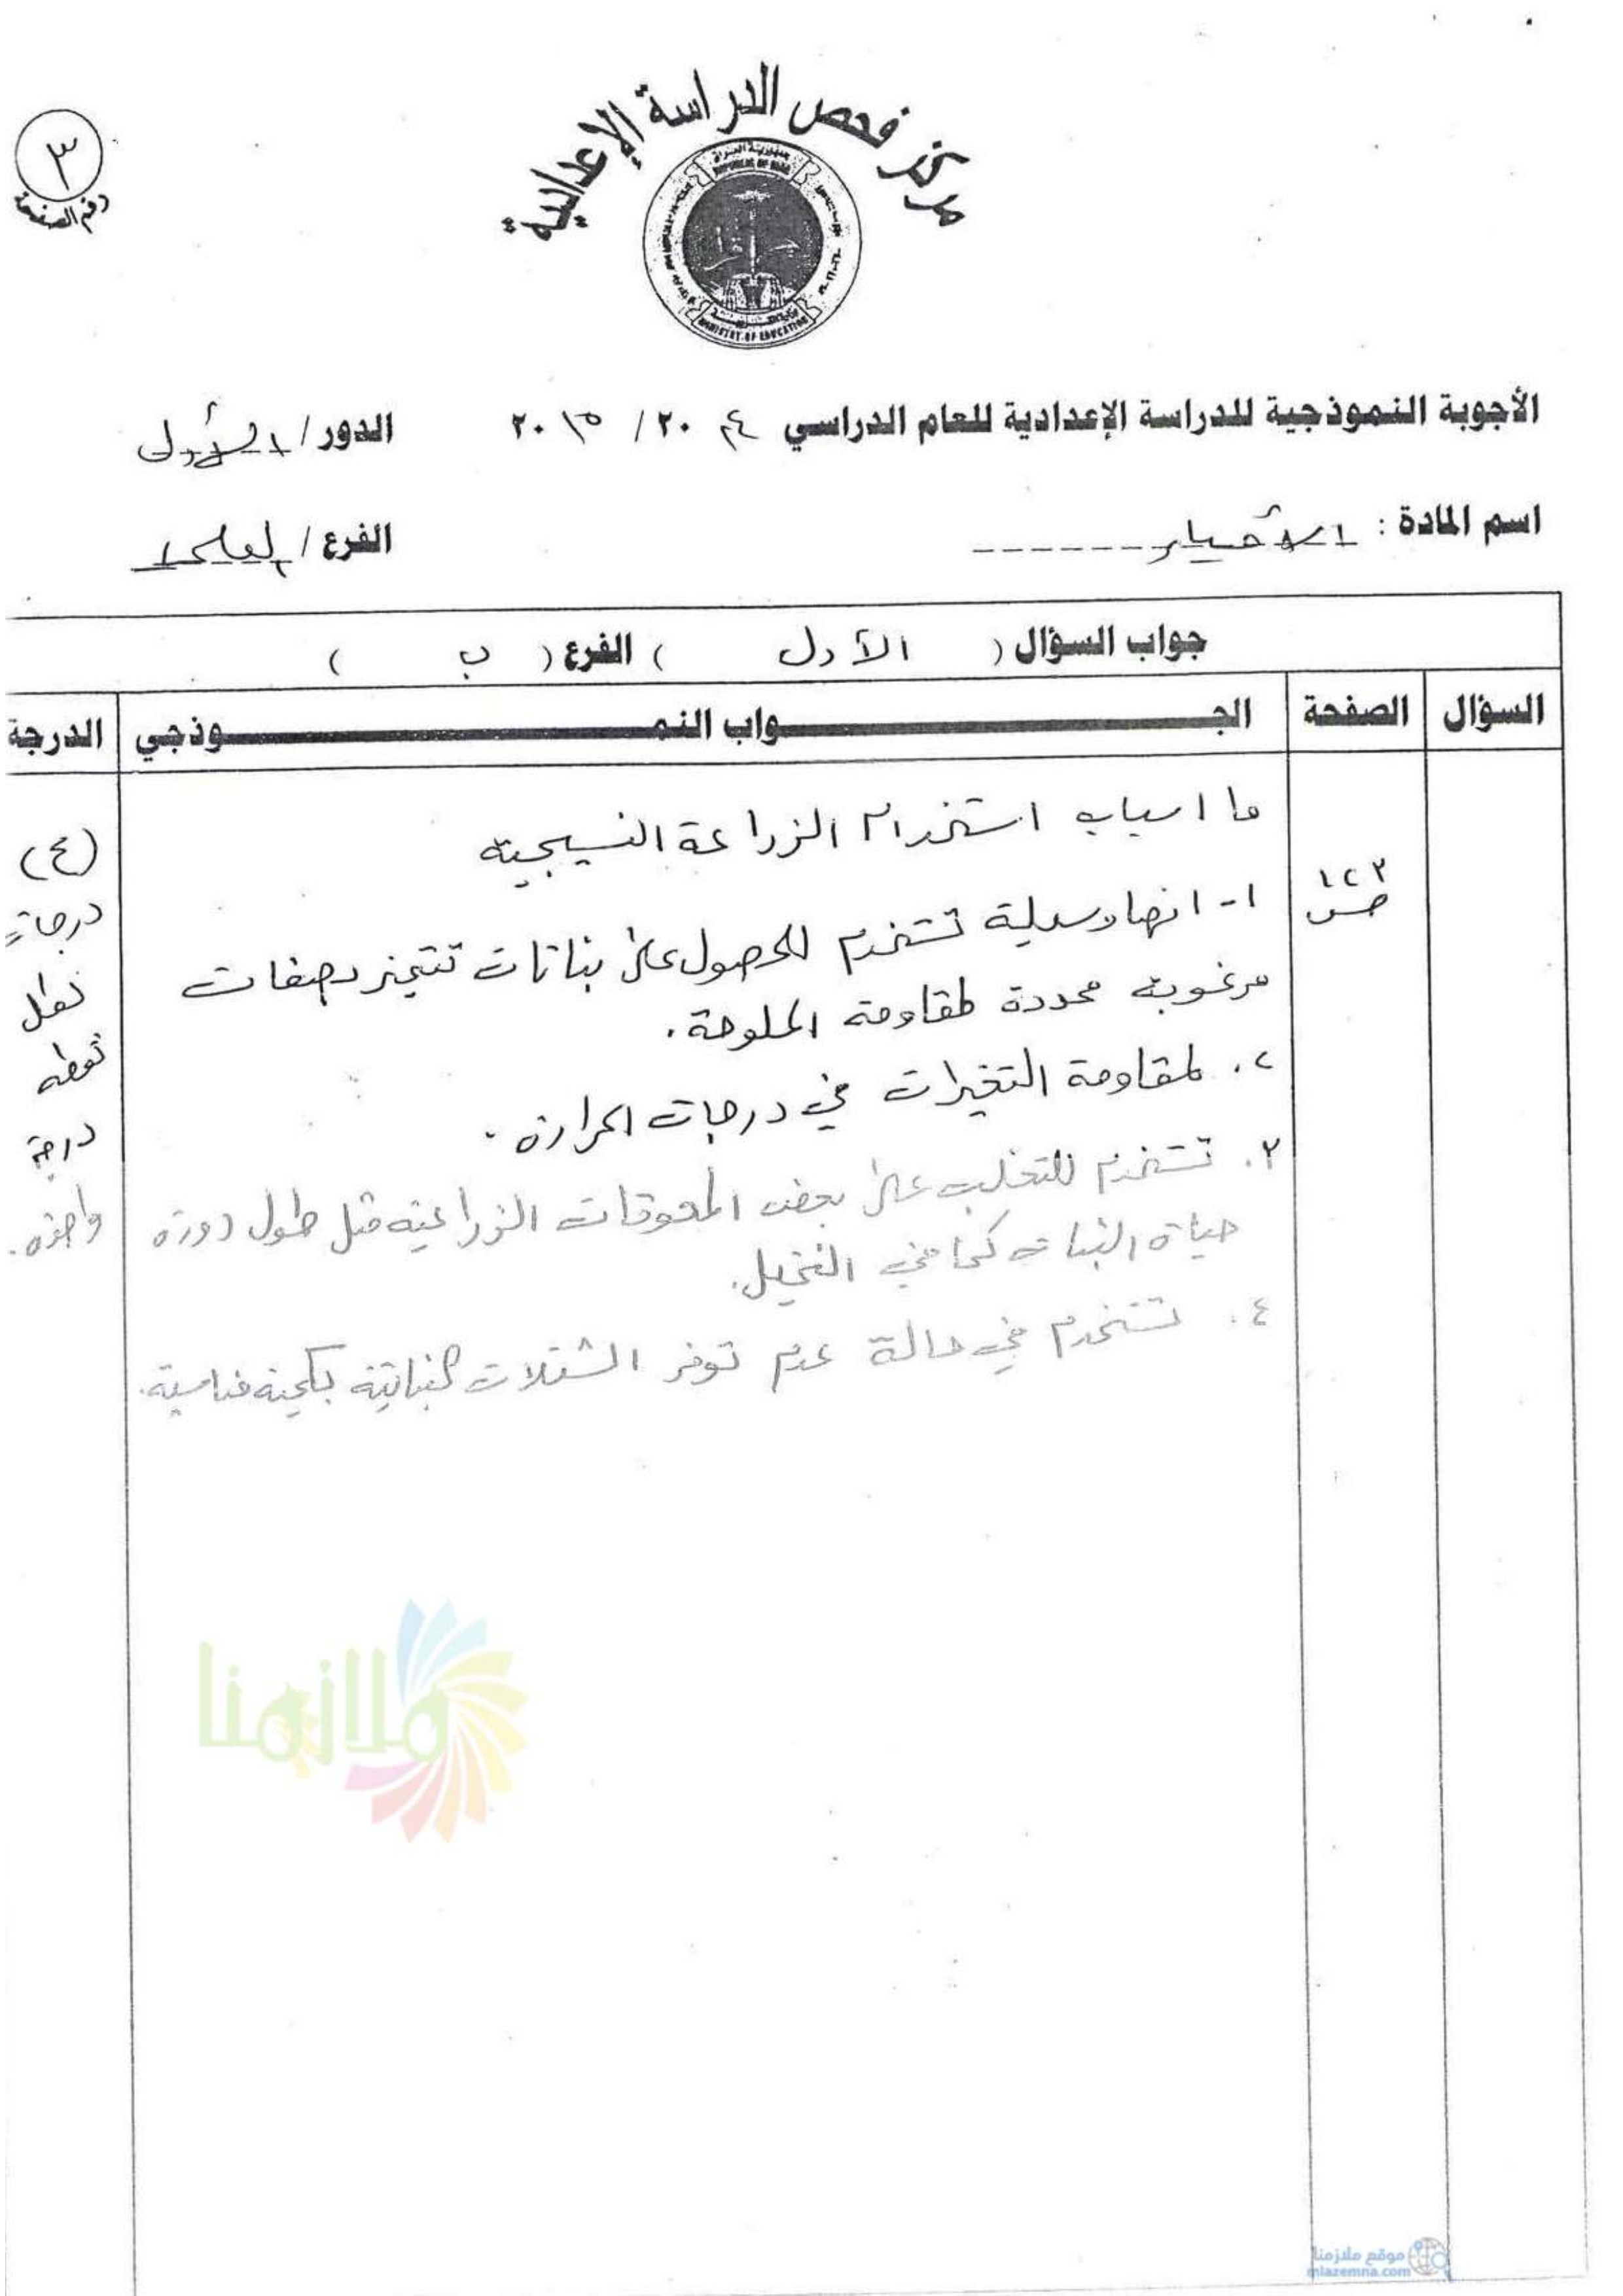 مركز فحص الدراسة الإعدادية
جمهورية العراق
REPUBLIC OF IRAQ
MINISTRY OF EDUCATION
٣
رقم الصفحة
الأجوبة النموذجية للدراسة الإعدادية للعام الدراسي ٢٠١٤ / ٢٠١٥ الدور / الأول
اسم المادة : الأحياء الفرع / العلمي
جواب السؤال ( الأول ) الفرع ( ب )
السؤال الصفحة الجـــواب النمـــوذجي الدرجة
ما اسباب استخدام الزراعة النسيجية
١- انها وسيلة تستخدم للحصول على نباتات تتميز بصفات
مرغوبة محددة كمقاومة الملوحة.
٢. لمقاومة التغيرات في درجات الحرارة.
٣. تستخدم للتغلب على بعض المعوقات الزراعية مثل طول دورة
حياة النبات كما في النخيل.
٤. تستخدم في حالة عدم توفر الشتلات النباتية بكمية مناسبة.
١٢٣
ص
(٤)
درجات
لكل
نقطة
درجة
واحدة.
ملازمنا
موقع ملازمنا
mlazemna.com